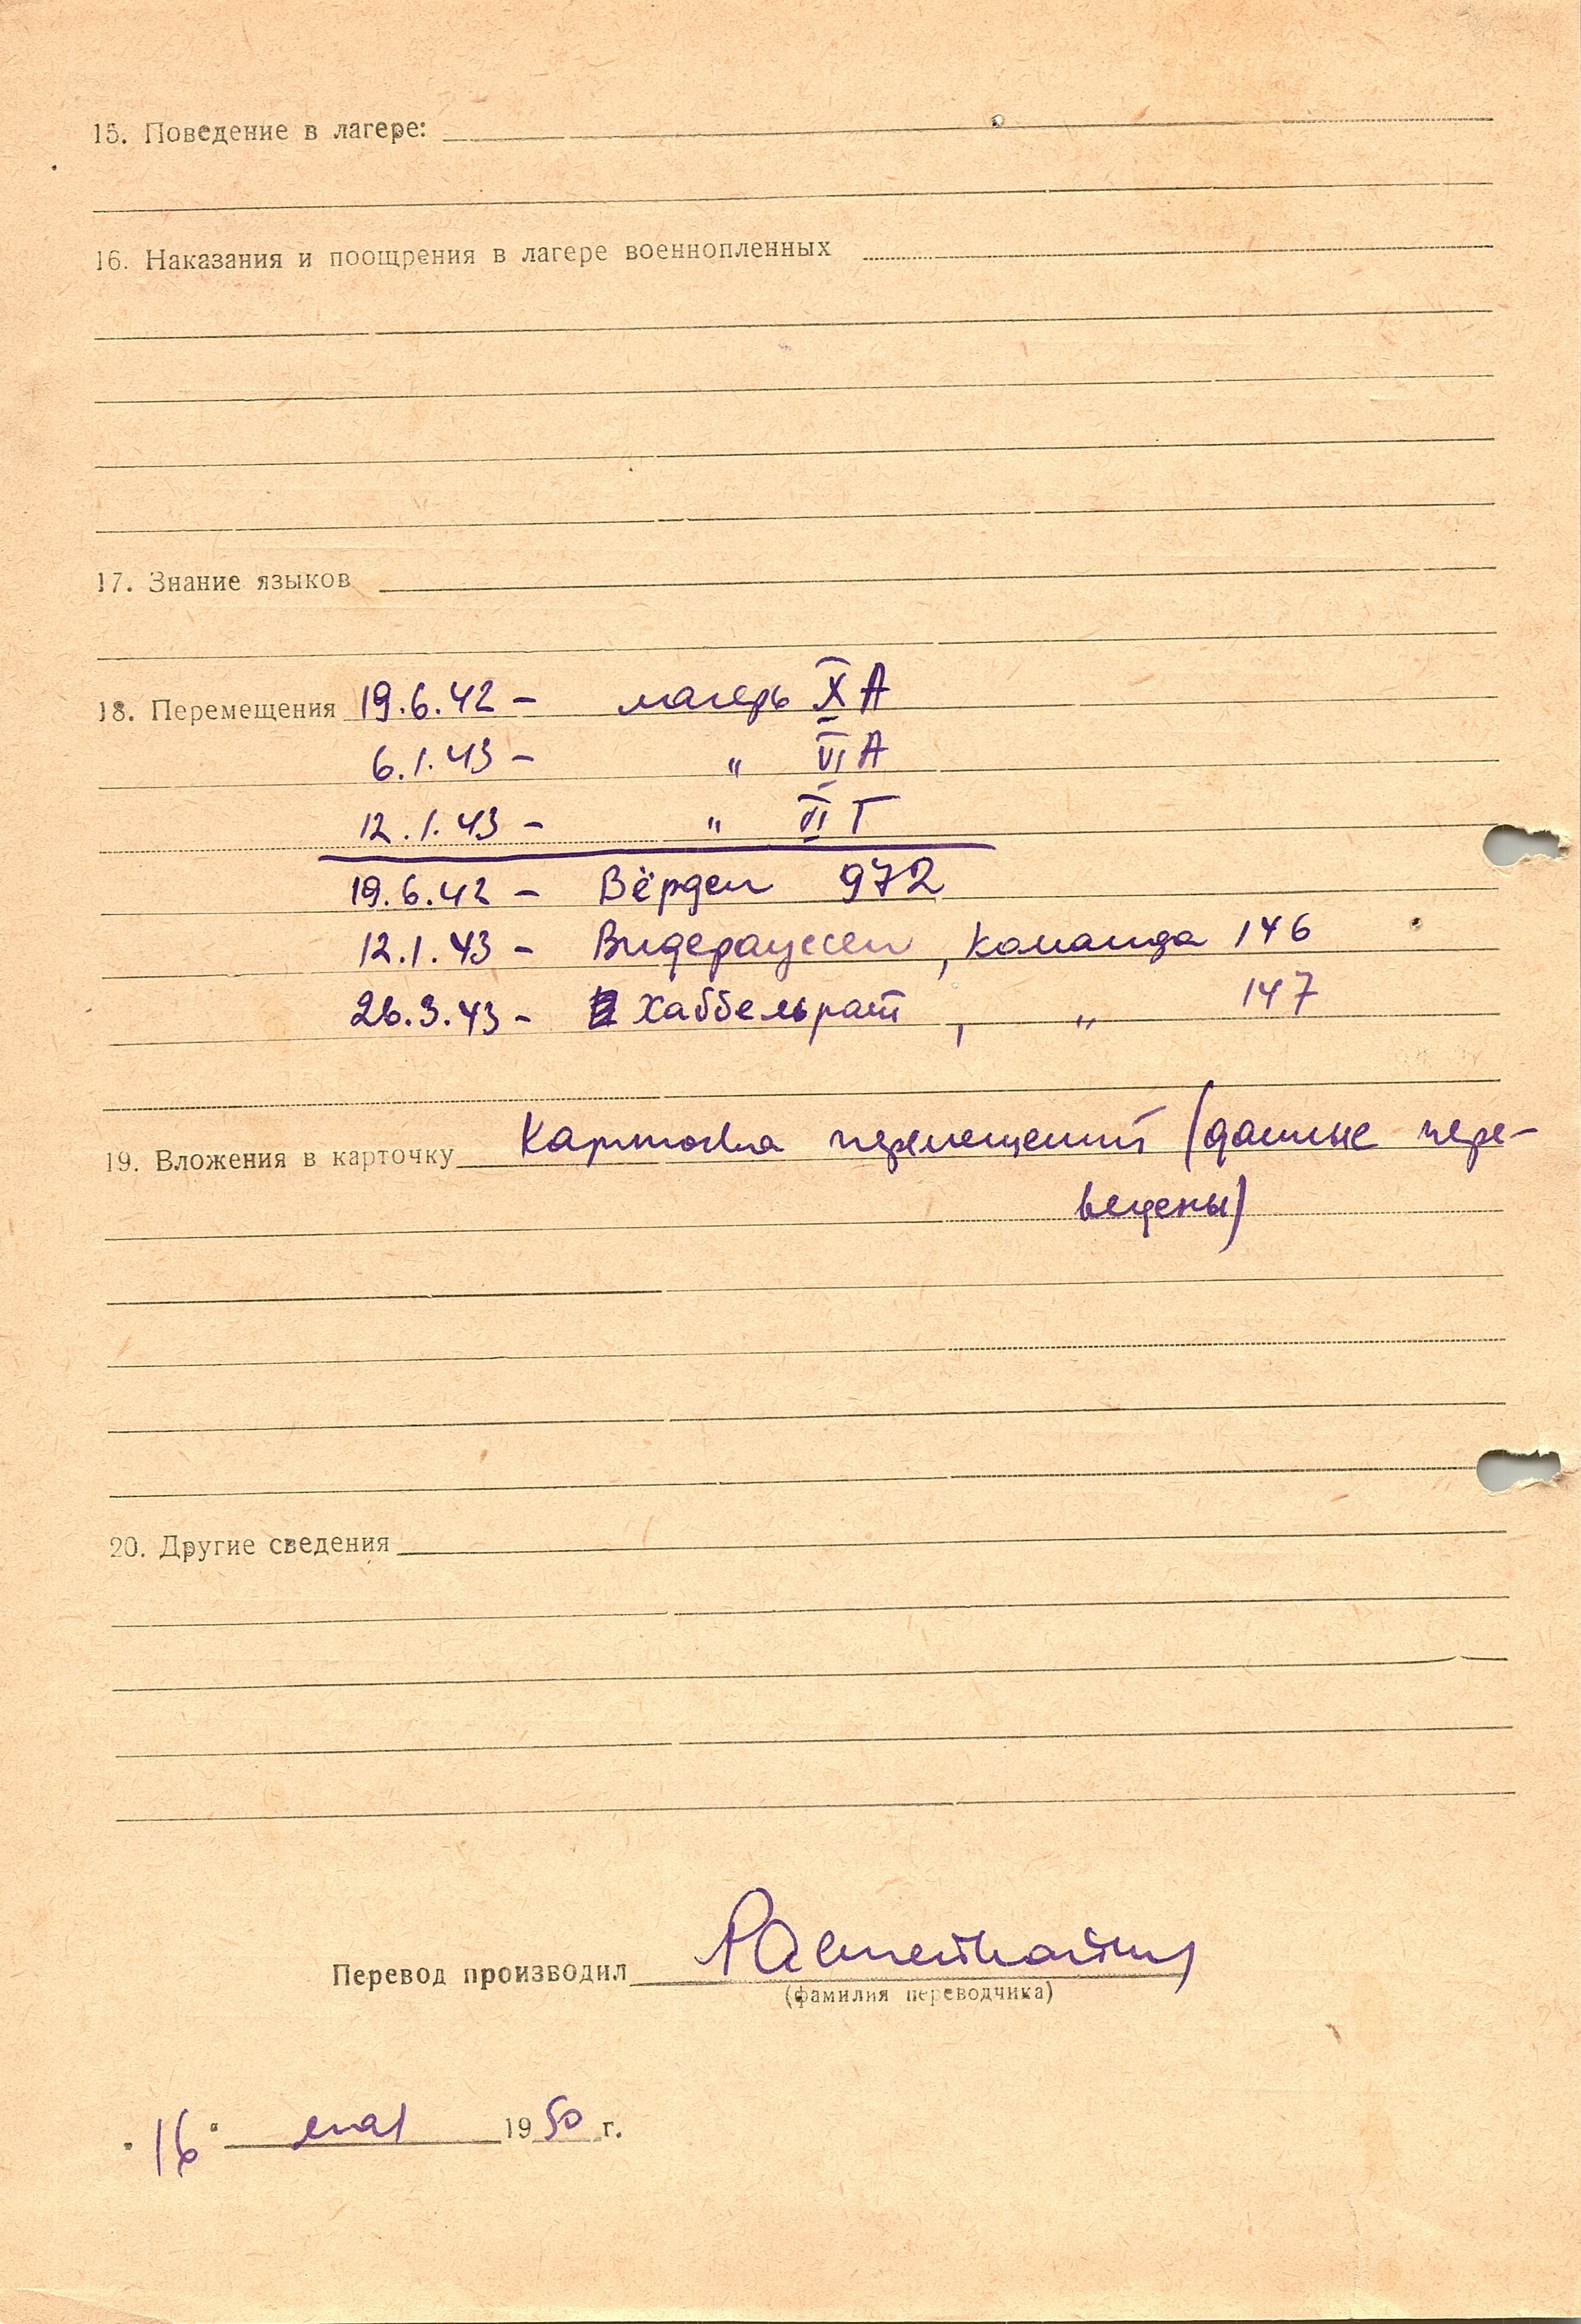 15. Поведение в лагере:
16. Наказания и поощрения в лагере военнопленных
17. Знание языков
18. Перемещения 19.6.42 – лагерь X A
6.1.43 – " VI A
12.1.43 – " VI Г
19.6.42 – Вёрден 972
12.1.43 – Видерауссен, команда 146
26.3.43 – Хаббельрат, " 147
19. Вложения в карточку Карточка перемещений (данные пере-
ведены)
20. Другие сведения
Перевод производил
(фамилия переводчика)
"16" мая 1950 г.